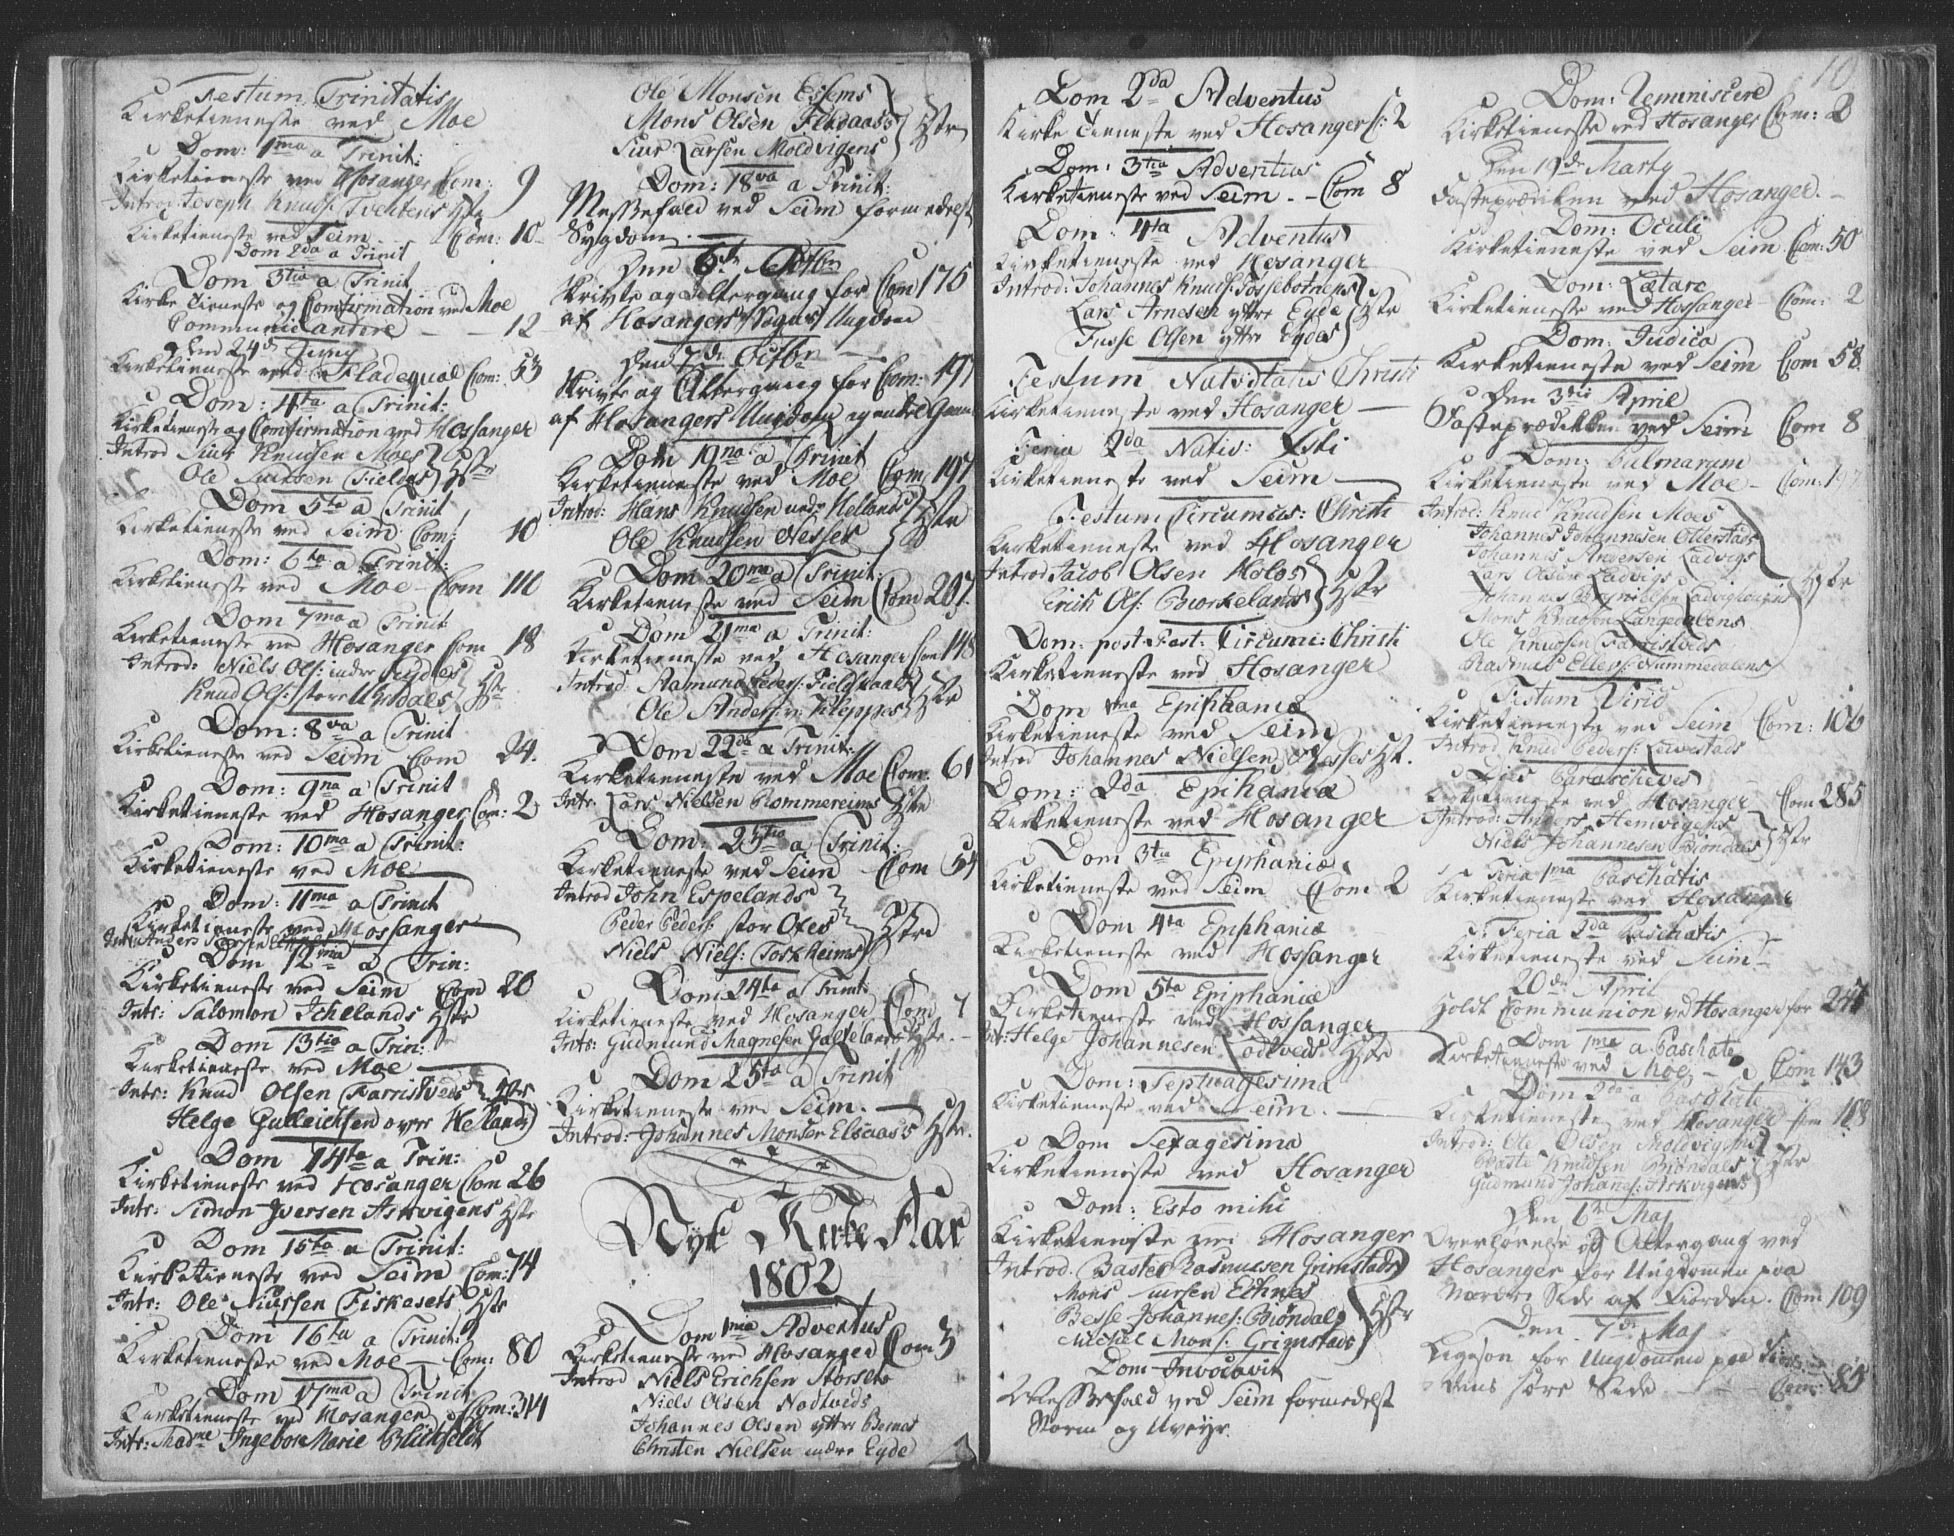 Festum Trinitatis
Kirketieneste ved Moe
Dom: 1ma a Trinit:
Kirketieneste ved Hosanger Com: 9
Introd: Joseph Knuds: Hstr
Kirketieneste ved Seim Com: 10
Dom 2da a Trinit
Dom 3tia a Trinit
Kirketieneste og Confirmation ved Moe
Communicantere - - 12
Den 24de Juny
Kirketieneste ved Com: 53
Dom: 4ta a Trinit:
Kirketieneste og Confirmation ved Hossanger
Introd Siur Knudsen Moes
Ole Hstr
Dom 5ta a Trinit
Kirketieneste ved Seim Com: 10
Dom: 6ta a Trinit:
Kirketieneste ved Moe Com
Dom 7ma a Trinit
Kirketieneste ved Hosanger Com 18
Introd: Niels Ols: indre Eydes
Knud Ols: store Urdals Hstr
Dom: 8va a Trinit
Kirketieneste ved Seim Com 24.
Dom: 9na a Trinit
Kirketieneste ved Hosanger Com: 2
Dom: 10ma a Trinit:
Kirketieneste ved Moe
Dom: 11ma a Trinit
Kirketieneste ved Hossanger
Intr: Anders
Dom 12ma a Trin:
Kirketieneste ved Seim Com 20
Intr: Salomon Hstr
Dom 13tia a Trin:
Kirketieneste ved Moe
Intr: Knud Olsen Farristveds Hstr
Helge Gulleichsen øvre Hellands
Dom 14ta a Trin:
Kirketieneste ved Hosanger Com 26
Intr: Simon Iversen Askvigens Hstr
Dom 15ta a Trinit:
Kirketieneste ved Seim Com: 74
Intr: Ole Siursen Fiskasets Hstr
Dom 16ta a Trinit:
Kirketieneste ved Moe Com: 80
Dom 17ma a Trinit
Kirketieneste ved Hosanger Com: 314
Intr: Madme Ingebor Marie
Ole Monsen Essems
Mons Olsen Hstr
Siur Larsen Moldvigens
Dom: 18va a Trinit:
Messefald ved Seim formedelst
Sygdom
Den 6te Octbr
Skrifte og Altergang for Com 175
af Hosangers Sogns Ungdom
Den 7de Octbr
Skrifte og Altergang for Com: 197
af Hosangers Ungdom
Dom 19na a Trinit
Kirketieneste ved Moe Com 197
Introd: Hans Knudsen nedr Hellands
Ole Knudsen Nesses Hstr
Dom 20ma a Trinit:
Kirketieneste ved Seim Com 207.
Dom 21ma a Trinit:
Kirketieneste ved Hosanger Com 148
Introd: Ramund Peders:
Ole Anders: Kleppes Hstr
Dom 22da a Trinit:
Kirketieneste ved Moe Com: 61
Intr: Lars Nielsen Rommereims Hstr
Dom: 23tia a Trinit:
Kirketieneste ved Seim Com 54
Introd John Espelands
Peder Peders: stor Otes
Niels Niels: Toskheims Hstr
Dom 24ta a Trinit:
Kirketieneste ved Hosanger Com 1
Intr: Gudmund Magnesen Hstr.
Dom 25ta a Trinit
Kirketieneste ved Seim.
Introd: Johannes Monsen Elsaas Hstr.
Nyt Kirke Aar
1802
Dom 1ma Adventus
Kirketieneste ved Hosanger Com 3
Introd Niels Erichsen Storset
Niels Olsen Nodtveds
Johannes Olsen yttre Bernes
Christen Nielsen indre Eyde
10
Dom 2da Adventus
Kirketieneste ved Hosanger C: 2
Dom: 3tia Adventus
Kirketieneste ved Seim - Com 8
Dom: 4ta Adventus
Kirketieneste ved Hosanger
Introd: Johannes Knuds: Fossebotnens
Lars Arnesen yttre Eyde Hstr
Fusse Olsen yttre Eydes
Festum Nativitatis Christi
Kirketieneste ved Hosanger
Feria 2da Natis: Xsti
Kirketieneste ved Seim
Festum Circumcis: Christi
Kirketieneste ved Hosanger
Introd Jacob Olsen Kolos
Erich Ols: Biørkelands Hstr
Dom: post Fest: Circumc: Christi
Kirketieneste ved Hosanger
Dom 1ma Epiphaniæ
Kirketieneste ved Seim
Introd Johannes Nielsen Nesses Hst.
Dom: 2da Epihaniæ
Kirketieneste ved Hosanger
Dom 3tia Epiphaniæ
Kirketieneste ved Seim Com 2
Dom 4ta Epiphaniæ
Kirketieneste ved Hossanger
Dom 5ta Epiphaniæ
Kirketieneste ved Hossanger
Intr: Helge Johannesen Lodtveds Hstr
Dom: Septuagesima
Kirketieneste ved Seim.
Dom Sexagesima
Kirketieneste ved Hosanger
Dom: Esto mihi
Kirketieneste ved Hosanger
Introd. Baste Rasmusen Grimstads
Mons Siursen Ethnes
Besse Johannes: Biøndal Hstr
Michel Mons: Grimstads
Dom Invocavit
Messefald ved Seim formedelst
Storm og Uveyr.
Dom: Reminiscere
Kirketieneste ved Hosanger Com: 2
Den 19de Marty
Fasteprædiken ved Hosanger. -
Dom: Oculi
Kirketieneste ved Seim Com: 50
Dom: Lætare
Kirketieneste ved Hossanger Com: 2
Dom: Judica
Kirketieneste ved Seim Com 58
Den 3die April
Fasteprædikken ved Seim Com 8
Dom: Palmarum
Kirketieneste ved Moe - Com: 197
Introd: Knud Knudsen Moes
Johannes Johannesen Otterstads
Johannes Andersen Ladvigs
Lars Olsen Ladvigs
Johannes Hstr
Mons Knudsen Langedalens
Ole Knudsen Farristveds
Rasmus Ellefs: Nummedalens
Festum Virid
Kirketieneste ved Seim Com: 106
Introd Knud Peders:
Dies Parasceves
Kirketieneste ved Hosanger Com 285
Introd: Anders Hemvigens
Niels Johannesen Biøndals Hstr
Feria 1ma Paschatis
Kirketieneste ved Hosanger
Feria 2da Paschatis
Kirketieneste ved Seim
20de April
Holdt Communion ved Hosanger for 247
Dom 1ma a Paschate
Kirketieneste ved Moe - Com 143
Dom 2da a Paschate
Kirketieneste ved Hosanger Com 168
Introd: Ole Olsen Moldvigens
Baste Knudsen Biøndals Hstr
Gudmund Johanes: Askvigens
Den 6te Maj
Overhørelse og Altergang ved
Hosanger for Ungdomen paa
Nordre Side af Fiorden. Com 109
Den 7de Maj
Ligeson for Ungdomen paa Fior-
dens søre Side - - Com: 85